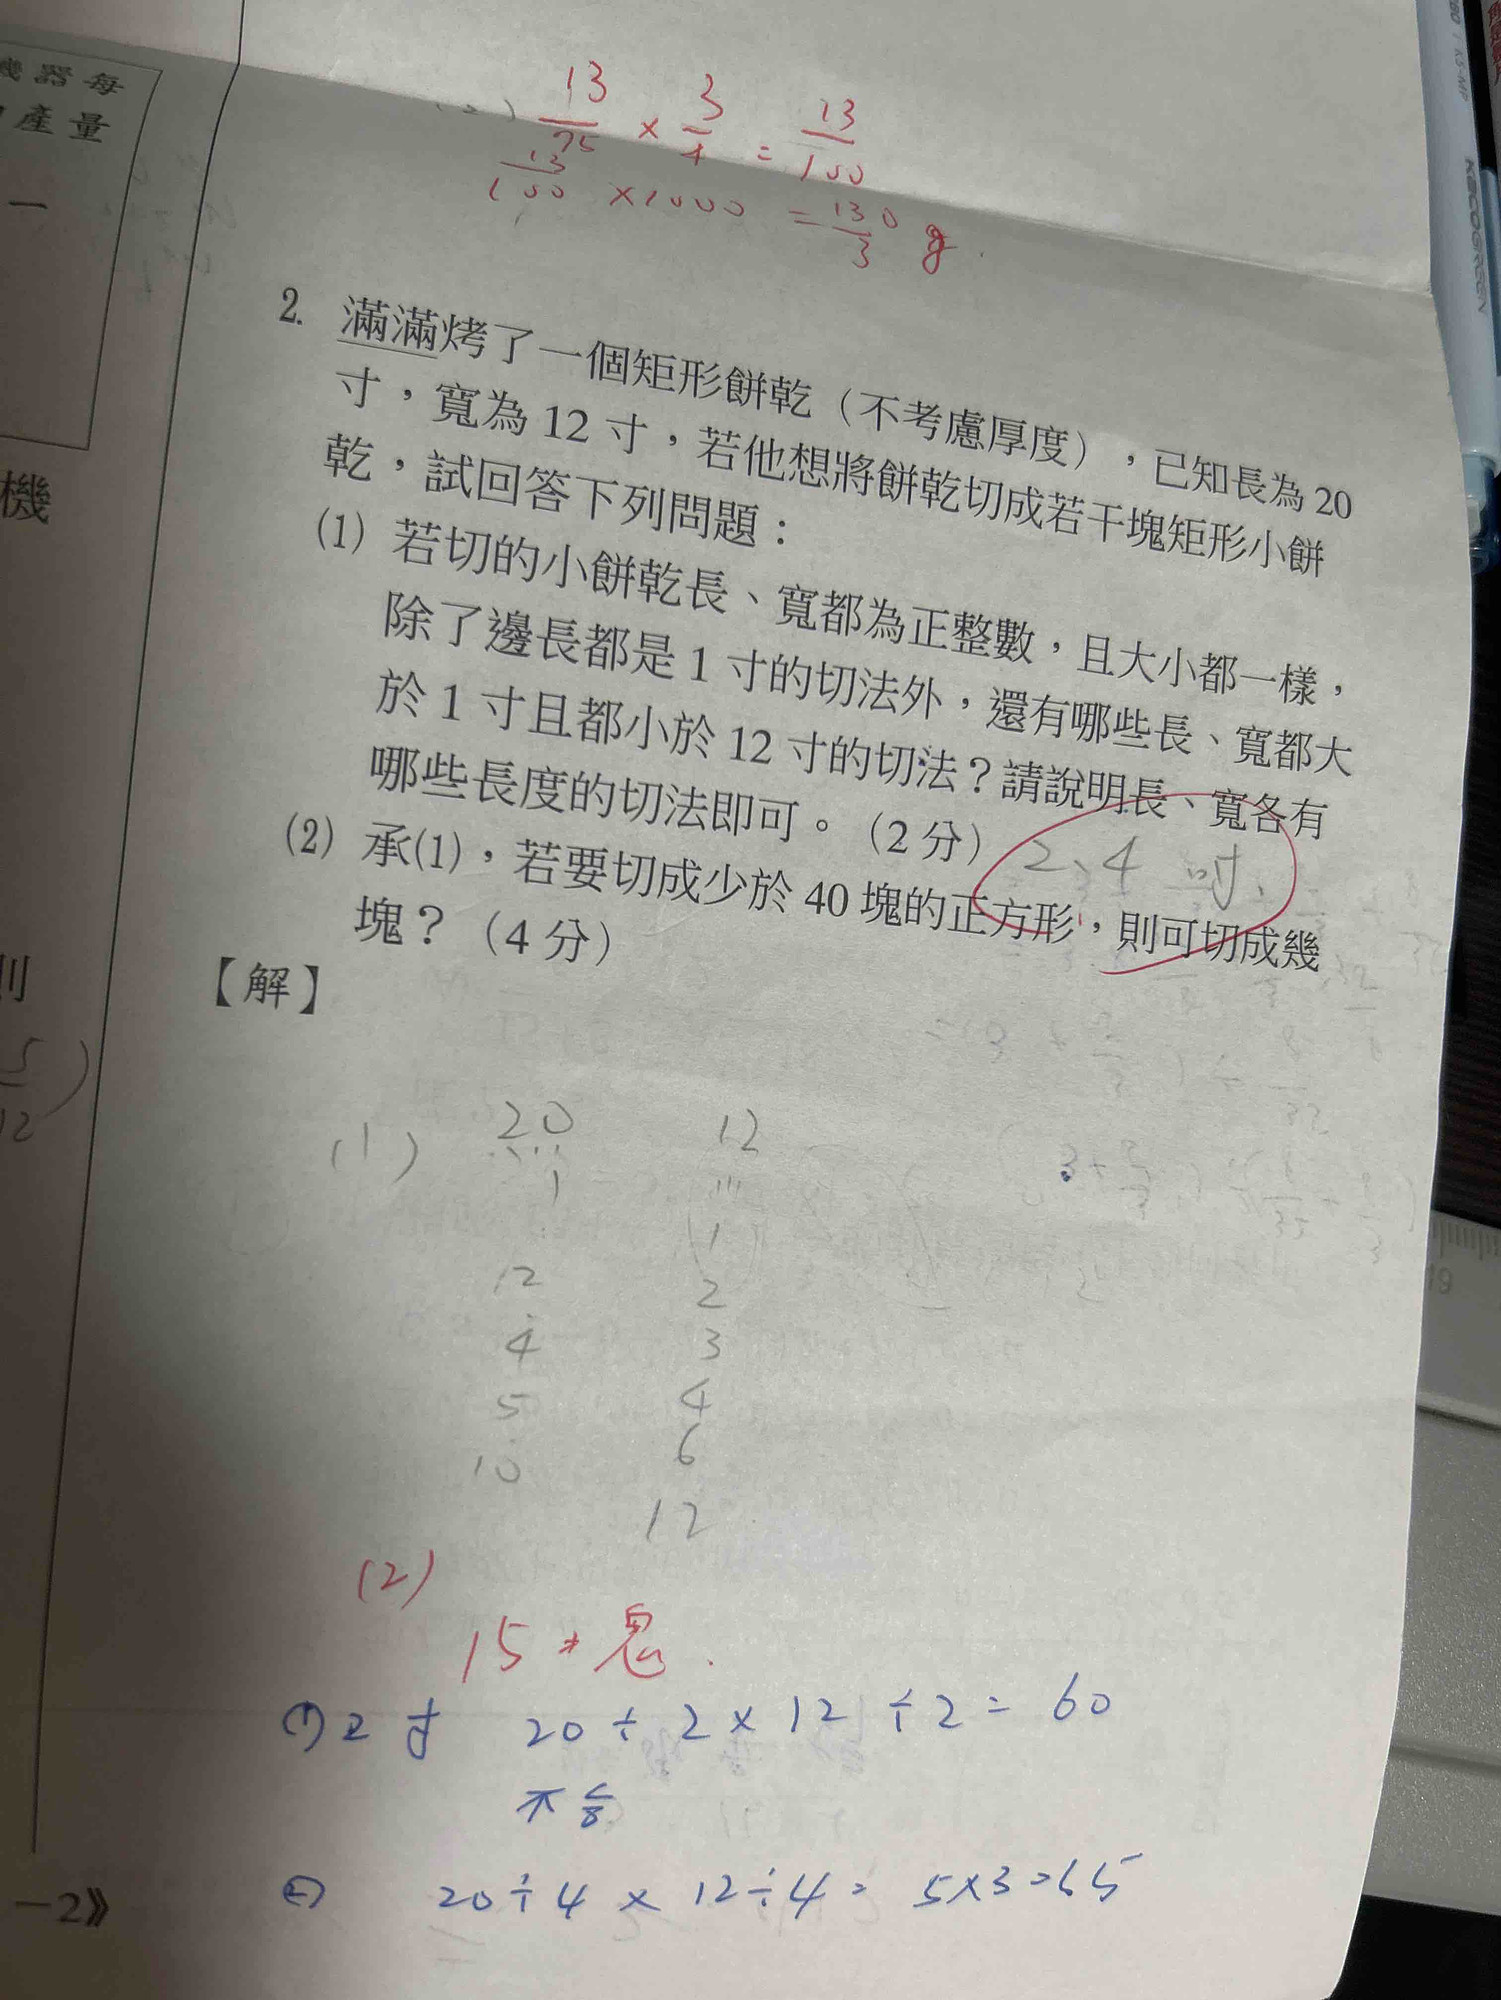 機器每
產量
一
機
則
5
12
一2》
(2) 13/75 × 3/4 = 13/100
13/100 ×1000 = 130/3 g.
2. 滿滿烤了一個矩形餅乾（不考慮厚度），已知長為 20
寸，寬為 12 寸，若他想將餅乾切成若干塊矩形小餅
乾，試回答下列問題：
(1) 若切的小餅乾長、寬都為正整數，且大小都一樣，
除了邊長都是 1 寸的切法外，還有哪些長、寬都大
於 1 寸且都小於 12 寸的切法？請說明長、寬各有
哪些長度的切法即可。（2 分）
2、4 吋、
(2) 承(1)，若要切成少於 40 塊的正方形，則可切成幾
塊？（4 分）
【解】
(1) 20 12
1 1
12 2
4 3
5 4
10 6
12
(2)
15 塊.
(1) 2 寸 20 ÷ 2 × 12 ÷ 2 = 60
不合
20 ÷ 4 × 12 ÷ 4 = 5×3=15
KACOGREEN
19